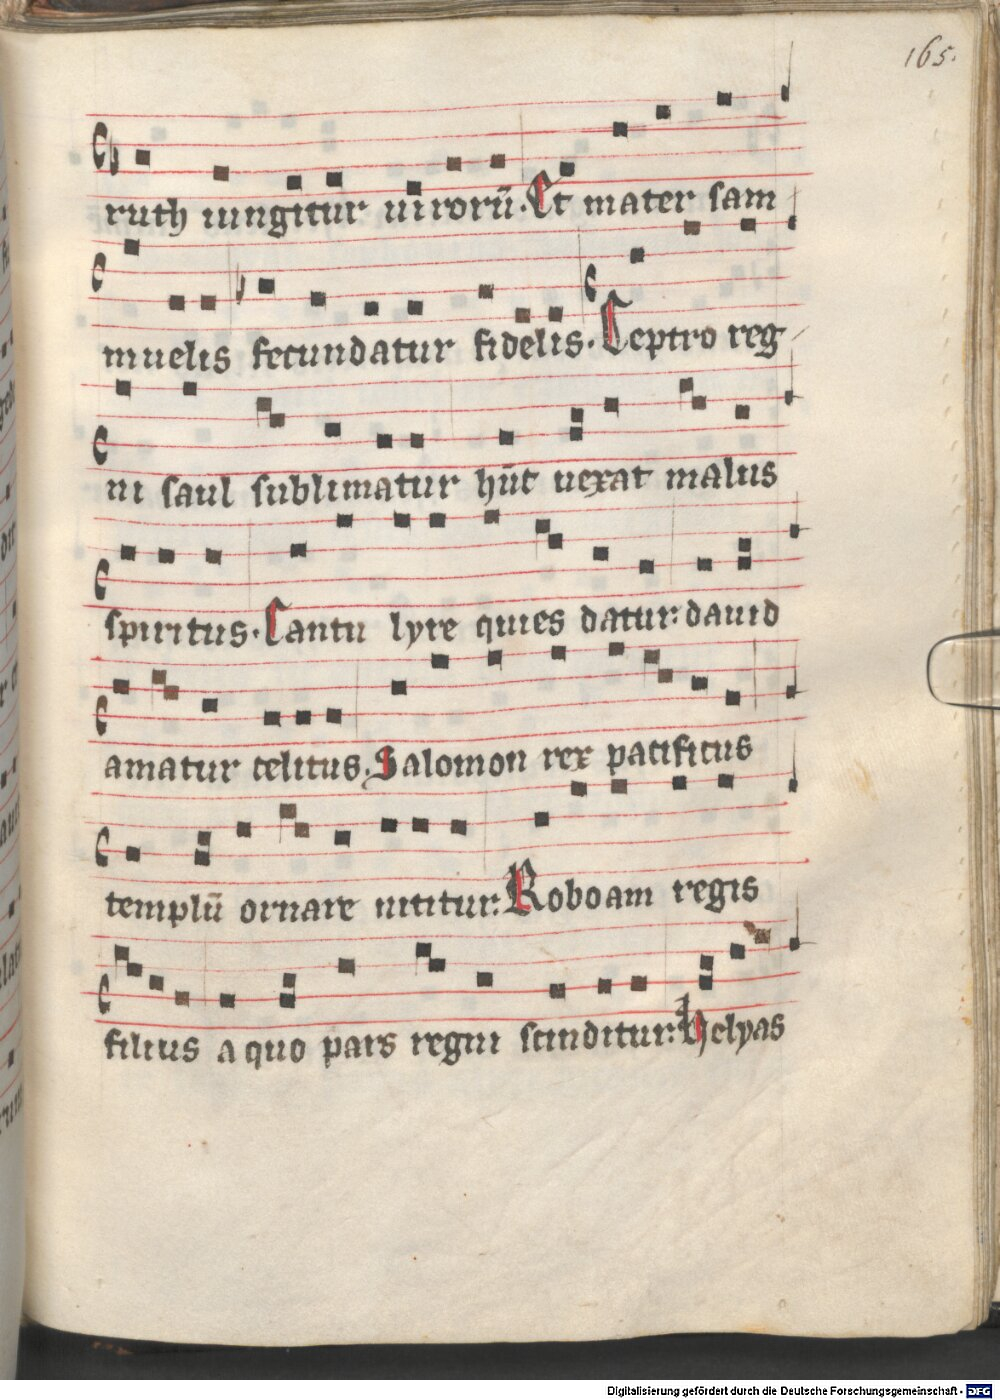 165.
ruth iungitur uirorū. Et mater sam
muelis fecundatur fidelis. Sceptro reg
ni saul sublimatur hūc uexat malus
spiritus. Cantu lyre quies datur: dauid
amatur celitus. Salomon rex pacificus
templū ornare nititur: Roboam regis
filius a quo pars regni scinditur: Helyas
Digitalisierung gefördert durch die Deutsche Forschungsgemeinschaft - DFG